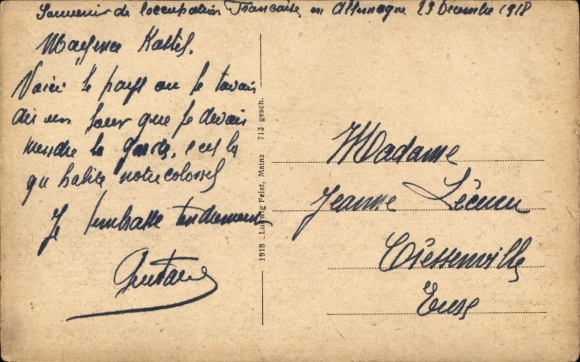 Souvenir de l'occupation Française en Allemagne 23 Decembre 1918
Mayence Kastel.
Voici le pays ou je t'avais
dis un jour que je devais
prendre la garde, c'est la
qu'habite notre colonel
Je t'embrasse tendrement
Gustave
1918 - Ludwig Feist, Mainz 713 gesch.
Madame
Jeanne Lécuru
Cressenville
Eure